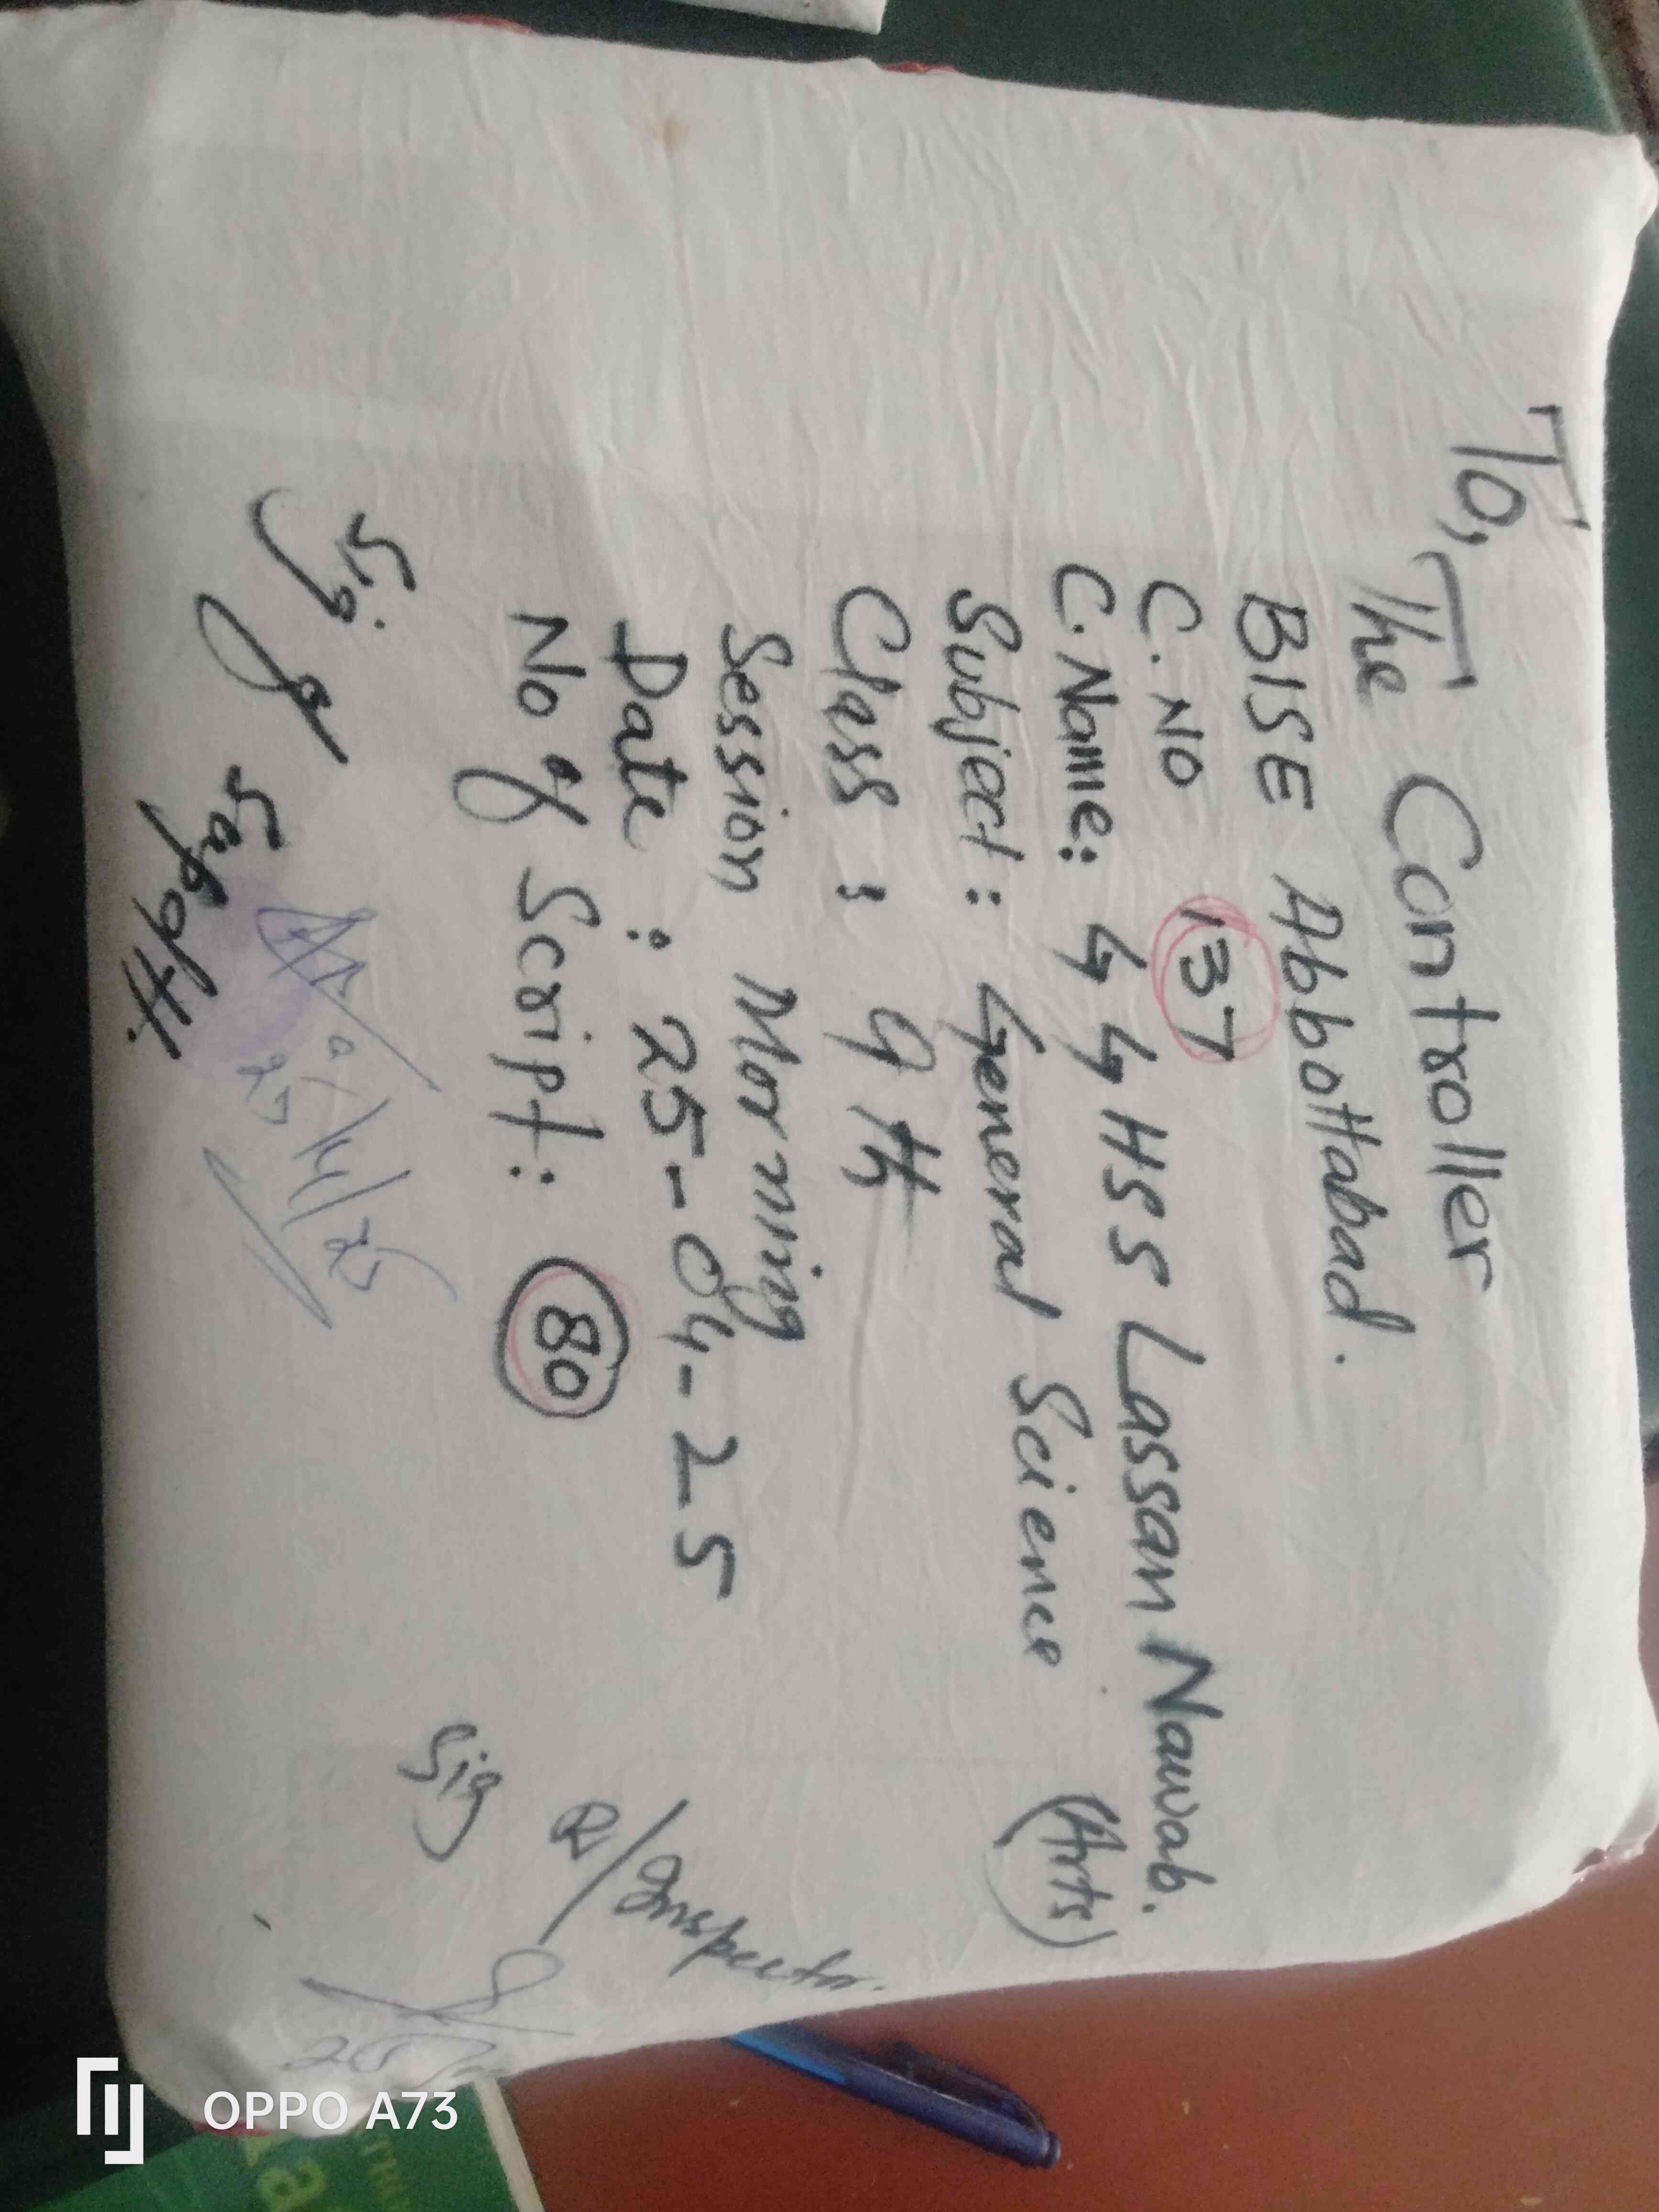 To,
The Controller
BISE Abbottabad.
C.No 137
C.Name: GGHSS Lassan Nawab.
Subject: General Science (Arts)
Class : 9th
Session Morning
Date : 25-04-25
No of Script: 80
R/Inspector.
Sig
Sig of Supdtt.
25/4/25
OPPO A73